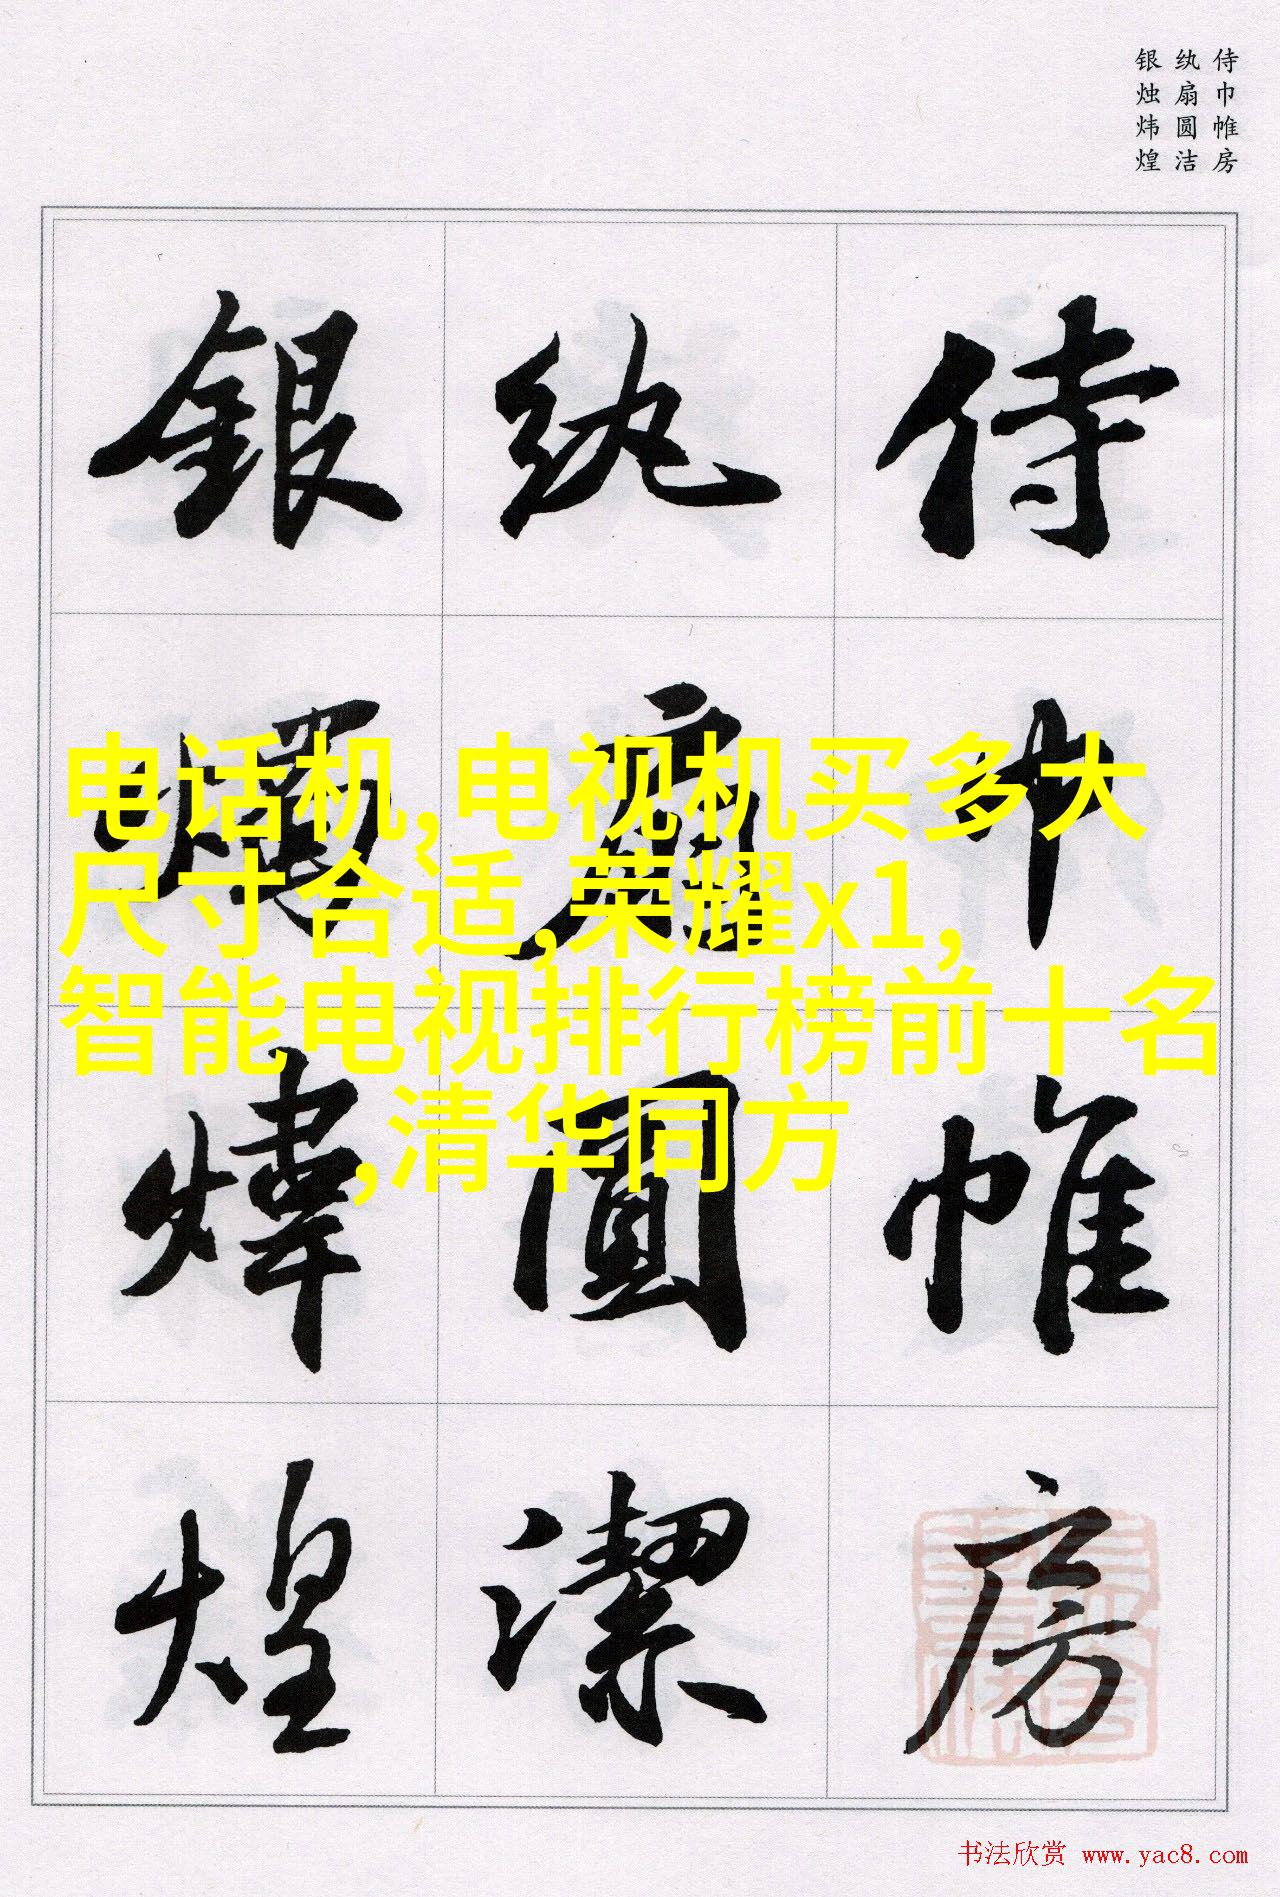 侍巾帷房
纨扇圆洁
银烛炜煌
侍巾帷房
纨扇圓潔
银燭煒煌
电话机,电视机买多大
尺寸合适,荣耀x1,
智能电视排行榜前十名
,清华同方
书法欣赏 www.yac8.com